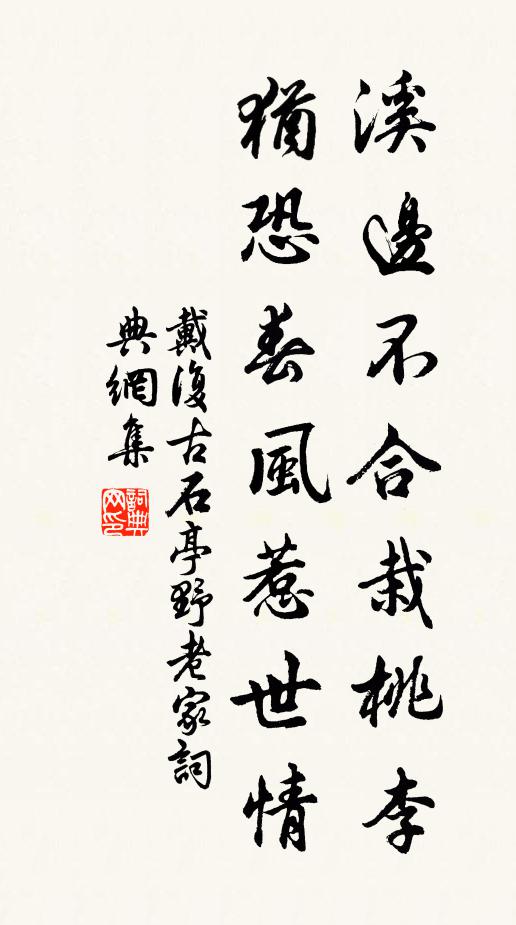 溪邊不合栽桃李
猶恐春風惹世情
戴復古石亭野老家詞
典網集
詞典网印